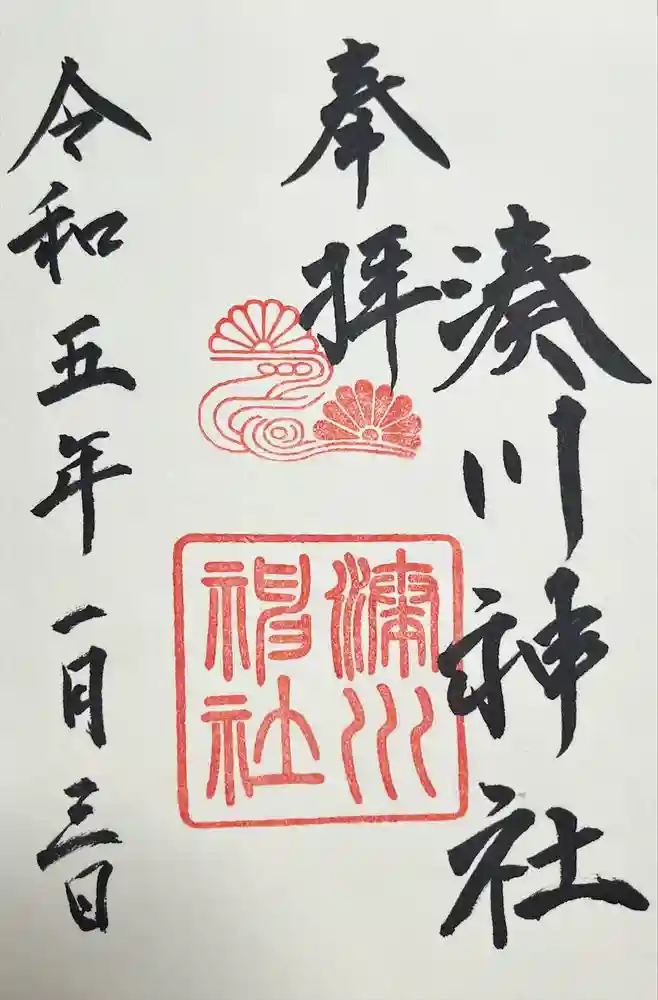 奉拝
湊川神社
湊川
神社
令和五年一月三日